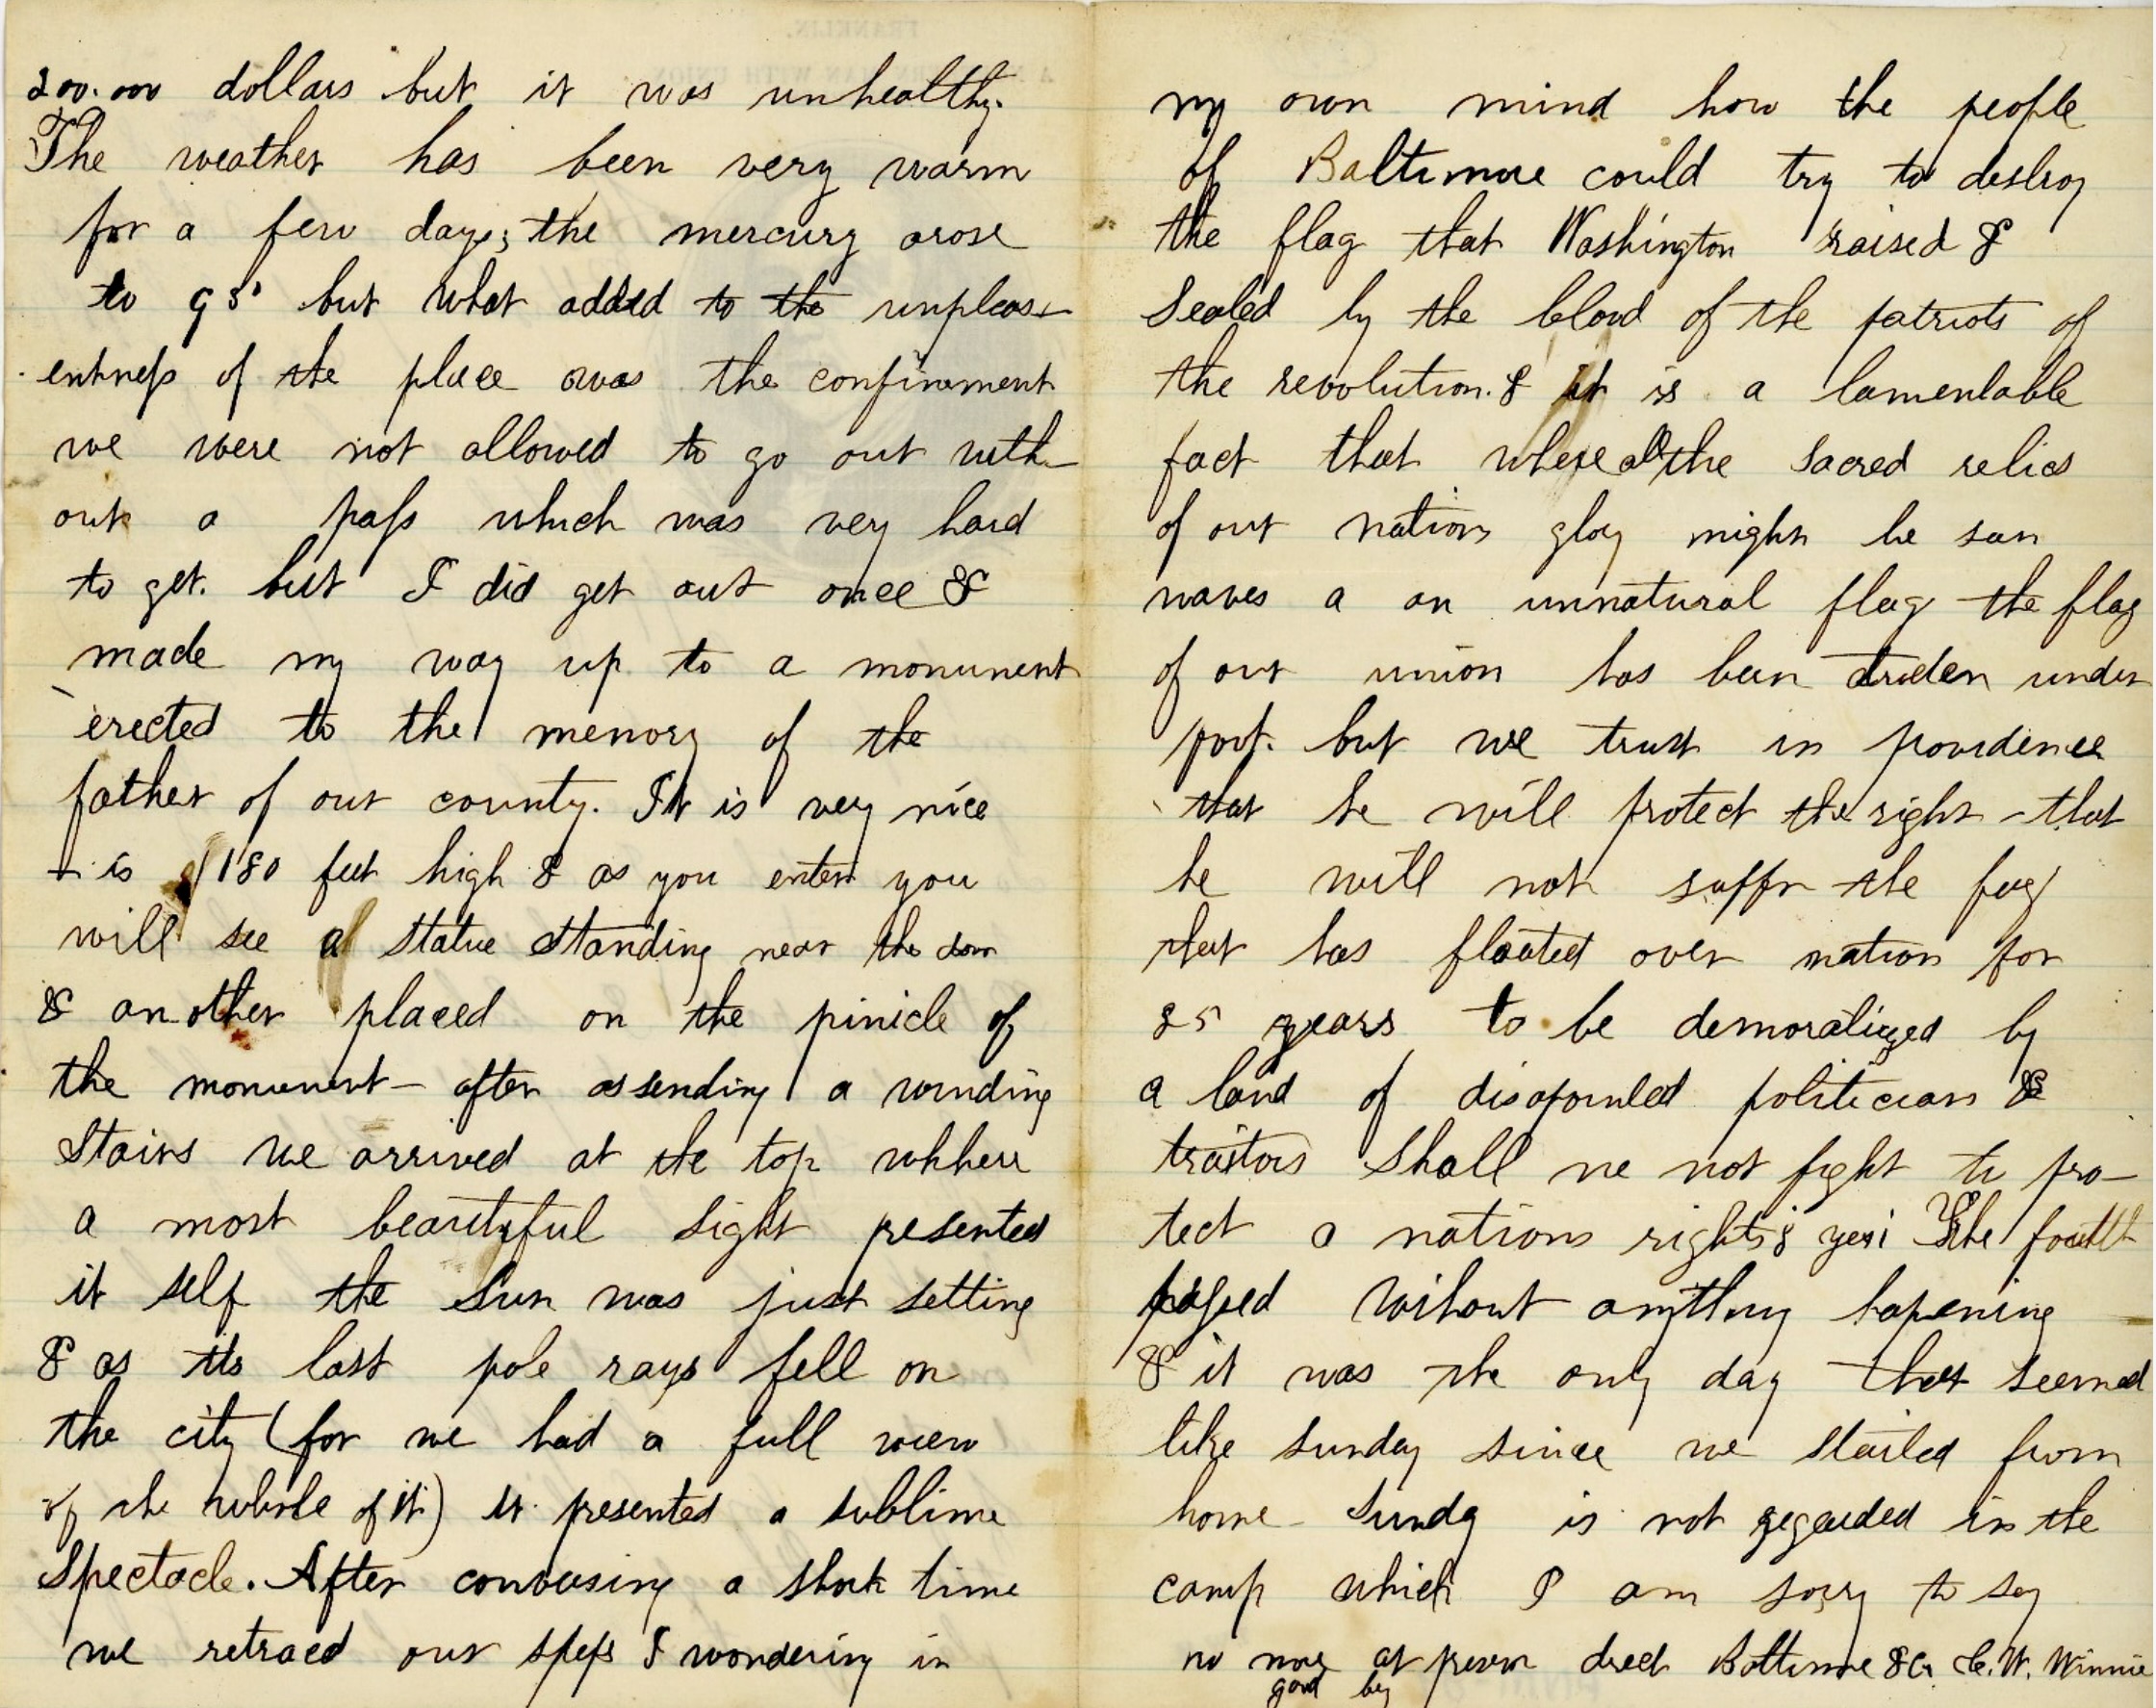 200.000 dollars but it was unhealthy.
The weather has been very warm
for a few days; the mercury arose
to 95° but what added to the unpleas-
entness of the place was the confinement
we were not allowed to go out with-
out a pass which was very hard
to get. but I did get out once &
made my way up to a monument
erected to the memory of the
father of our county. It is very nice
is 180 feet high & as you enter you
will see a statue standing near the door
& another placed on the pinicle of
the monument - after assending a winding
stairs we arrived at the top whhere
a most beautyful sight presented
it self the sun was just setting
& as its last pale rays fell on
the city (for we had a full view
of the whole of it) it presented a sublime
spectacle. After conversing a short time
we retraced our steps I wondering in
my own mind how the people
of Baltimore could try to destroy
the flag that Washington raised &
sealed by the blood of the patriots of
the revolution. & it is a lamentable
fact that where all the sacred relics
of our nations glory might be seen
waves a an unnatural flag the flag
of our union has been troden under
foot. but we trust in providence
that he will protect the right - that
he will not suffer the flag
that has floated over nation for
85 years to be demoralized by
a band of disapointed politician &
traitors shall we not fight to pro-
tect a nations rights yes! The fourth
passed without anything hapening
& it was the only day that seemed
like sunday since we started from
home Sunday is not regarded in the
camp which I am sorry to say
no more at present direct Baltimore &c C. W. Winnie
good by